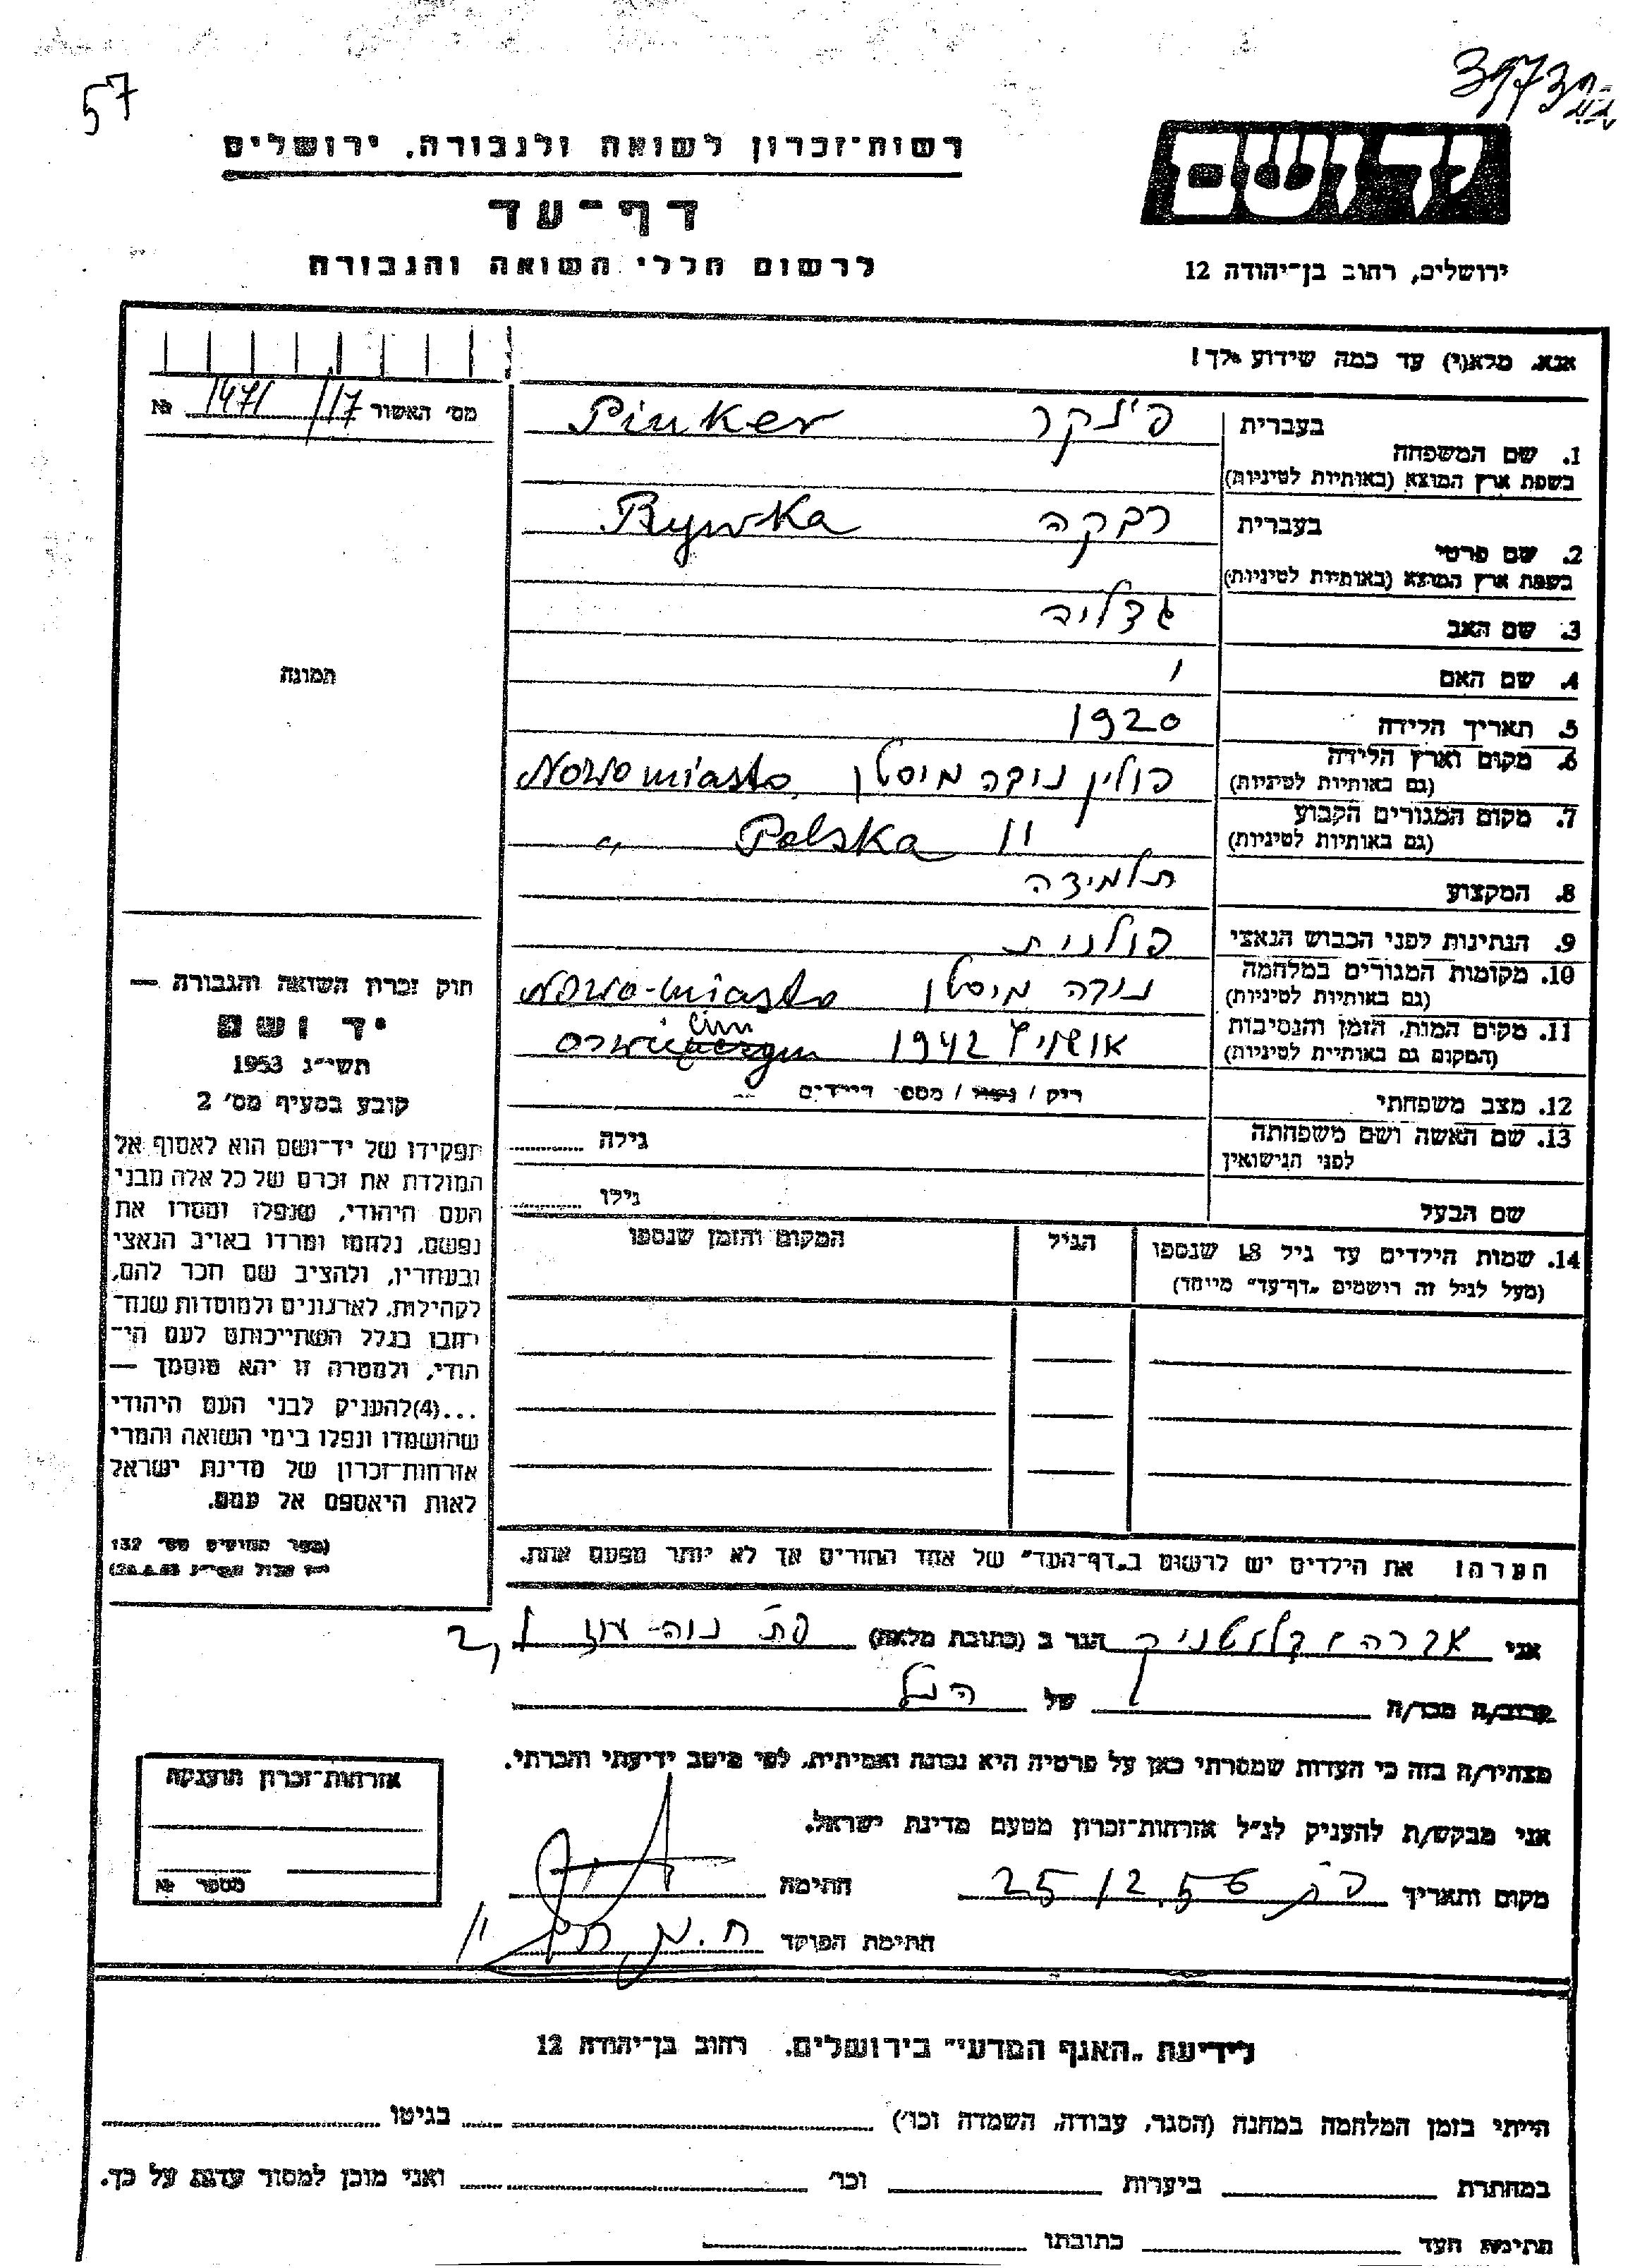 57
רשות־זכרון לשואה ולגבורה, ירושלים
דף־עד
לרשום חללי השואה והגבורה
ידושם
ירושלים, רחוב בן־יהודה 12
אנא, מלא(י) עד כמה שידוע לך!
מס׳ האשור 1471/17 №
1. שם המשפחה בעברית פינקר Pinker
בשפת ארץ המוצא (באותיות לטיניות)
2. שם פרטי בעברית רבקה Rywka
בשפת ארץ המוצא (באותיות לטיניות)
3. שם האב גדליה
4. שם האם
5. תאריך הלידה 1920
6. מקום וארץ הלידה פולין נובה מיסטו Nowo miasto,
(גם באותיות לטיניות)
7. מקום המגורים הקבוע " Polska "
(גם באותיות לטיניות)
8. המקצוע תלמידה
9. הנתינות לפני הכבוש הנאצי פולנית
10. מקומות המגורים במלחמה נובה מיסטו Nowo-miasto
(גם באותיות לטיניות)
11. מקום המות, הזמן והנסיבות אושויץ 1942
(המקום גם באותיות לטיניות)
12. מצב משפחתי רוק / נשוי / מספר הילדים
13. שם האשה ושם משפחתה גילה
לפני הנישואין
שם הבעל גילו
14. שמות הילדים עד גיל 18 שנספו הגיל המקום והזמן שנספו
(מעל לגיל זה רושמים „דף־עד" מיוחד)
תמונה
חוק זכרון השואה והגבורה —
יד ושם
תשי״ג 1953
קובע בסעיף מס׳ 2
תפקידו של יד־ושם הוא לאסוף אל
המולדת את זכרם של כל אלה מבני
העם היהודי, שנפלו ומסרו את
נפשם, נלחמו ומרדו באויב הנאצי
ובעוזריו, ולהציב שם וזכר להם,
לקהילות, לארגונים ולמוסדות שנח־
רבו בגלל השתייכותם לעם הי־
הודי, ולמטרה זו יהא מוסמך —
...(4)להעניק לבני העם היהודי
שהושמדו ונפלו בימי השואה והמרי
אזרחות־זכרון של מדינת ישראל
לאות היאספם אל עמם.
(ספר החוקים מס׳ 132
הערה! את הילדים יש לרשום ב„דף־העד" של אחד ההורים אך לא יותר מפעם אחת.
אני הגר ב (כתובת מלאה) פת נוה-עוז
קרוב/ה מכר/ה של הנ״ל
מצהיר/ה בזה כי העדות שמסרתי כאן על פרטיה היא נכונה ואמיתית, לפי מיטב ידיעתי והכרתי.
אני מבקש/ת להעניק לנ״ל אזרחות־זכרון מטעם מדינת ישראל.
מקום ותאריך 25/12.56 חתימה
חתימת הפוקד
אזרחות־זכרון הוענקה
מספר №
לידיעת „האגף המדעי" בירושלים. רחוב בן־יהודה 12
הייתי בזמן המלחמה במחנה (הסגר, עבודה, השמדה וכו׳) בגיטו
במחתרת ביערות וכו׳ ואני מוכן למסור עדות על כך.
חתימת העד כתובתו